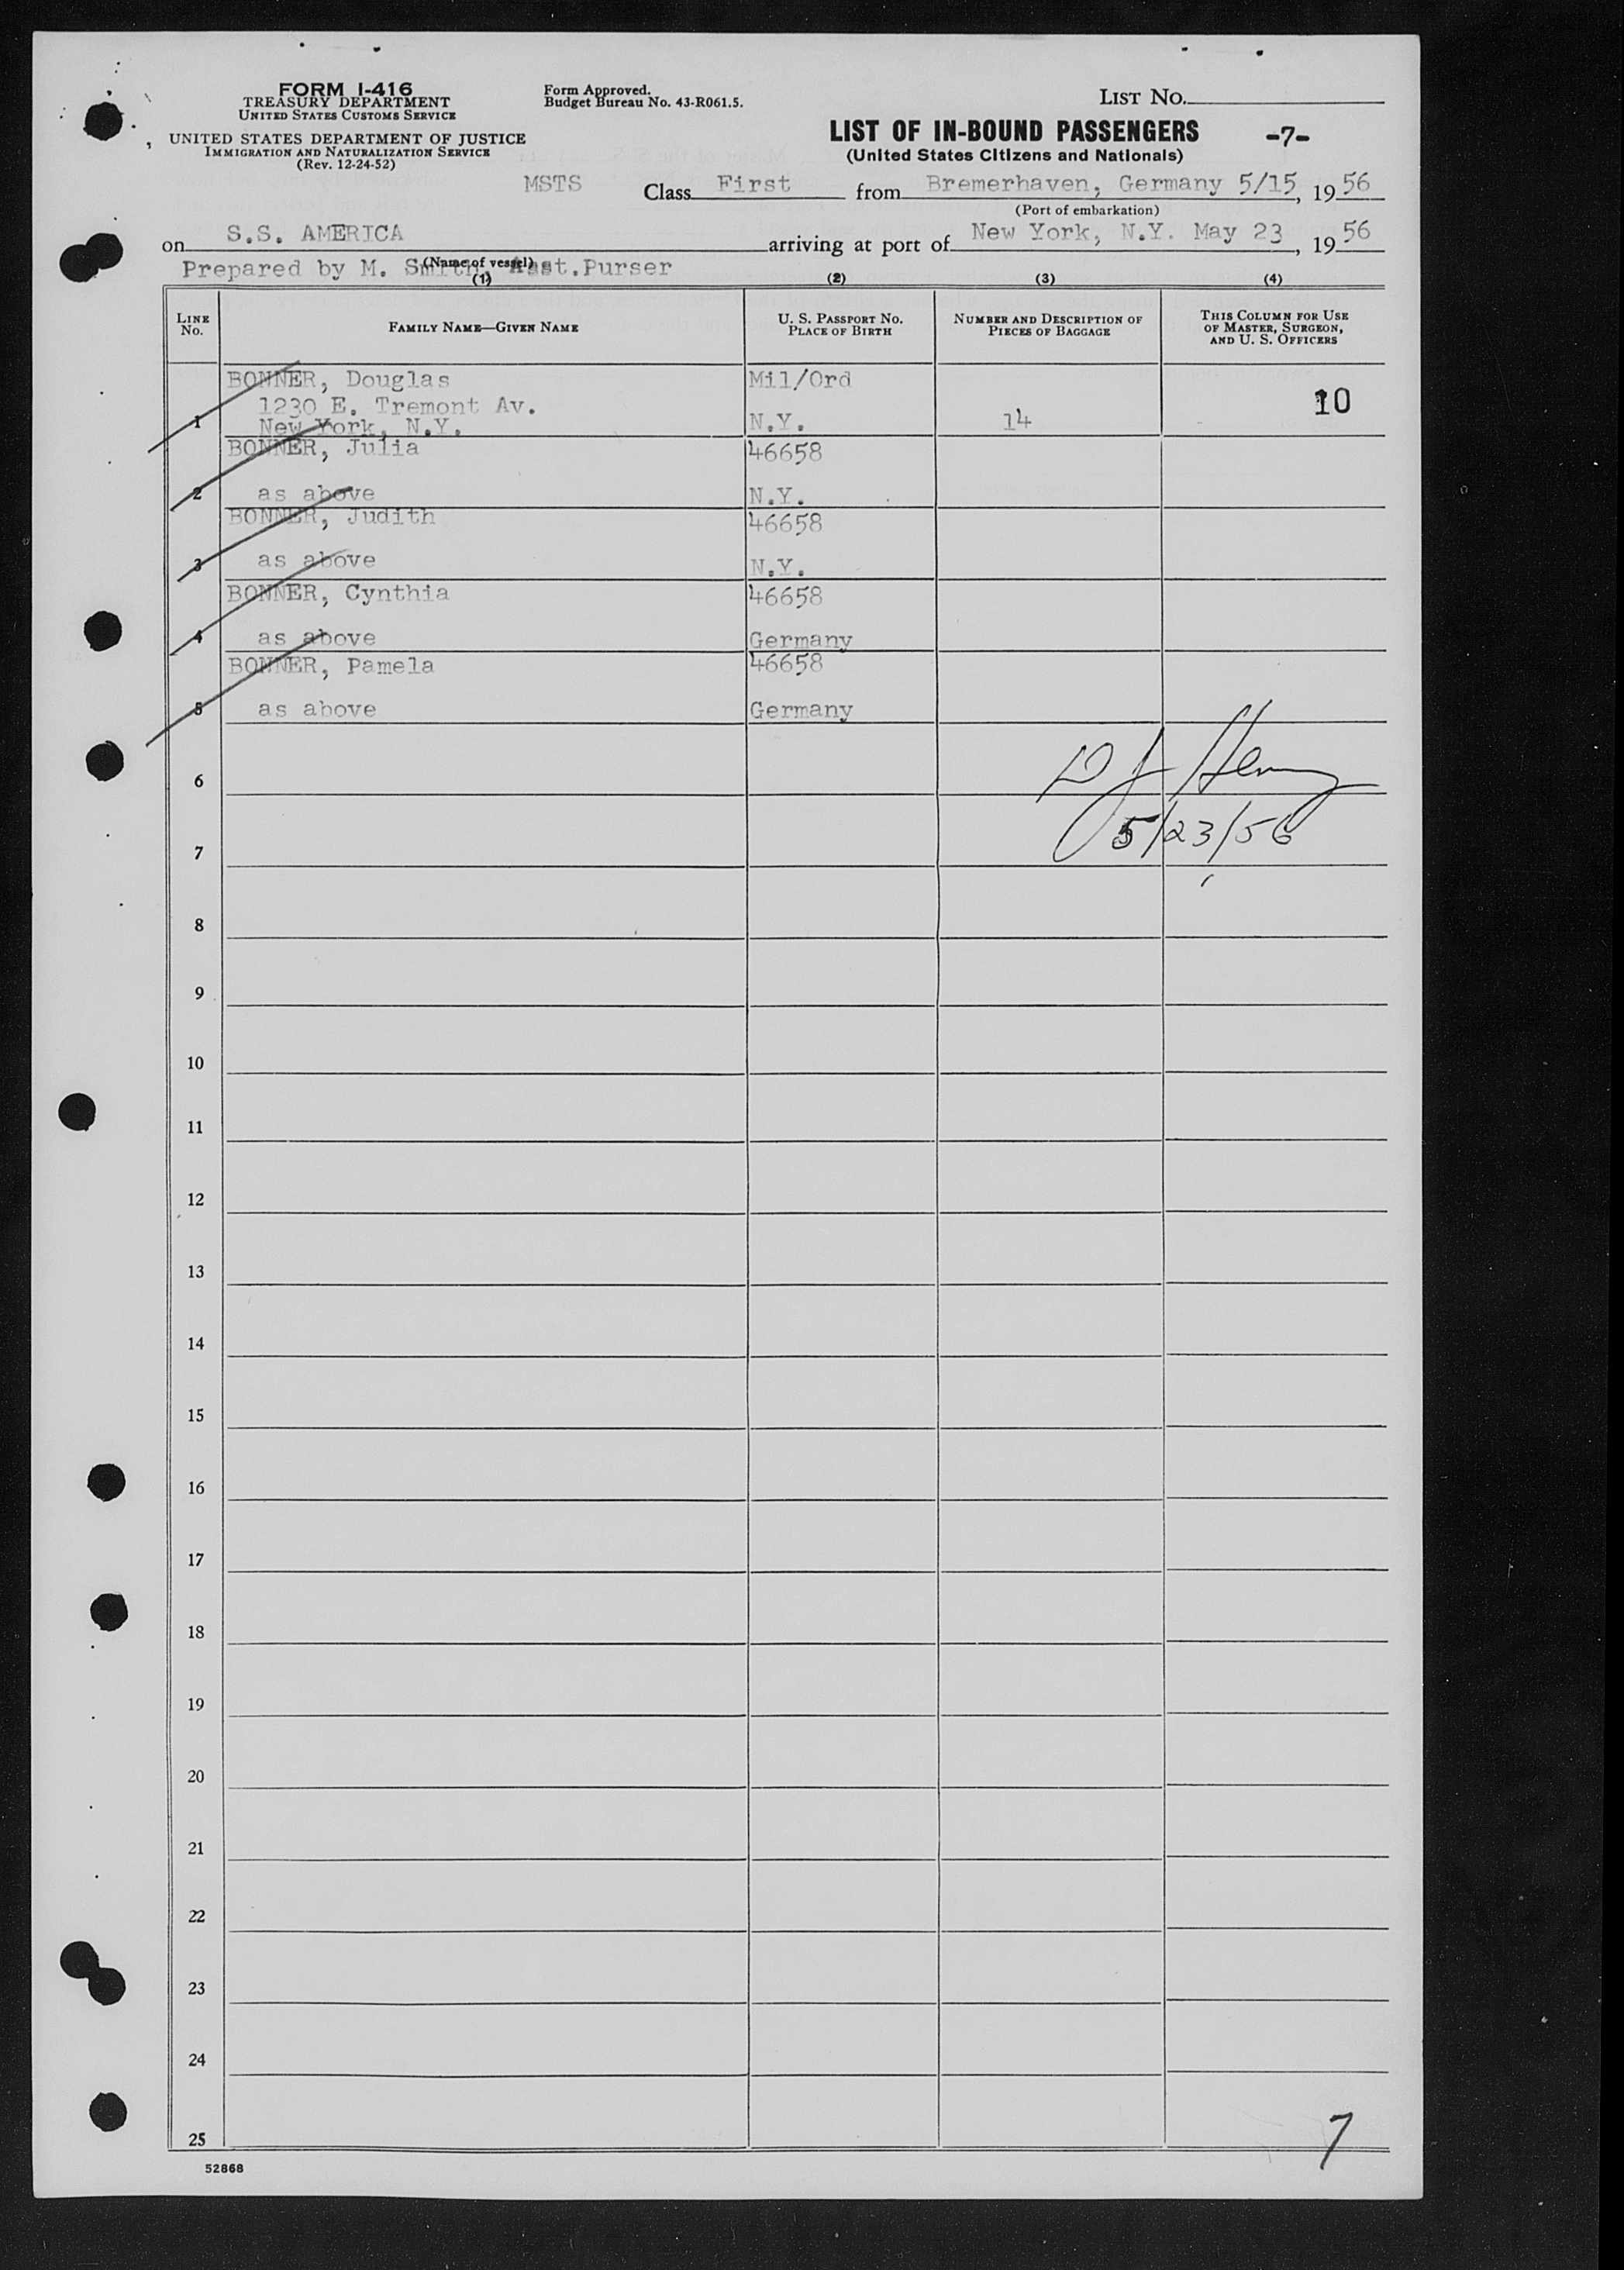 FORM I-416
TREASURY DEPARTMENT
UNITED STATES CUSTOMS SERVICE
UNITED STATES DEPARTMENT OF JUSTICE
IMMIGRATION AND NATURALIZATION SERVICE
(Rev. 12-24-52)
Form Approved.
Budget Bureau No. 43-R061.5.
LIST NO.
LIST OF IN-BOUND PASSENGERS -7-
(United States Citizens and Nationals)
MSTS Class First from Bremerhaven, Germany 5/15, 1956
(Port of embarkation)
on S.S. AMERICA arriving at port of New York, N.Y. May 23, 1956
(Name of vessel)
Prepared by M. Smith, Asst.Purser
(1) (2) (3) (4)
LINE NO. FAMILY NAME—GIVEN NAME U. S. PASSPORT NO. PLACE OF BIRTH NUMBER AND DESCRIPTION OF PIECES OF BAGGAGE THIS COLUMN FOR USE OF MASTER, SURGEON, AND U. S. OFFICERS
BONNER, Douglas Mil/Ord
1230 E. Tremont Av. 10
1 New York, N.Y. N.Y. 14
BONNER, Julia 46658
2 as above N.Y.
BONNER, Judith 46658
3 as above N.Y.
BONNER, Cynthia 46658
4 as above Germany
BONNER, Pamela 46658
5 as above Germany
6
5/23/56
7
8
9
10
11
12
13
14
15
16
17
18
19
20
21
22
23
24
25
7
52868